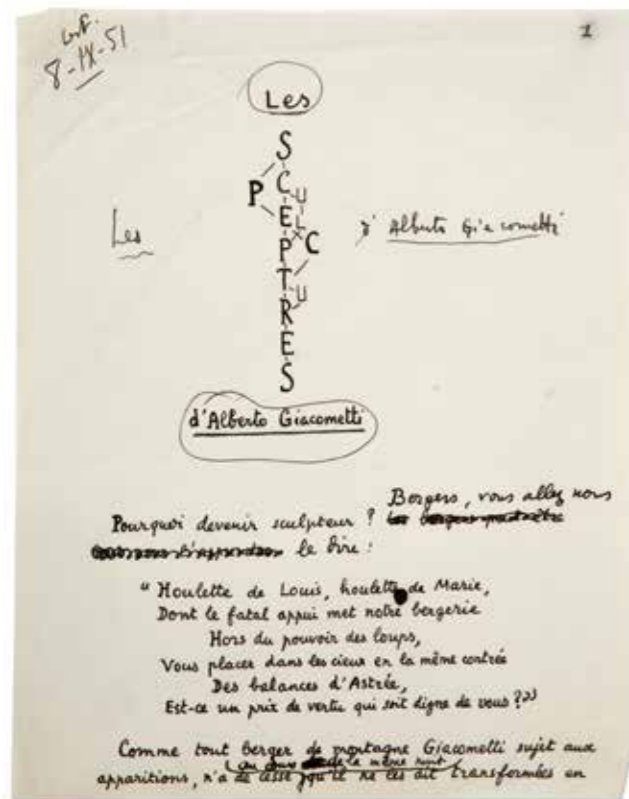 8-IX-51
1
Les
S
C
E
P
T
R
E
S
P U L C U
Les
d'Alberto Giacometti
d'Alberto Giacometti
Bergers, vous allez nous
Pourquoi devenir sculpteur ?
le dire :
"Houlette de Louis, houlette de Marie,
Dont le fatal appui met notre bergerie
Hors du pouvoir des loups,
Vous placer dans les cieux en la même contrée
Des balances d'Astrée,
Est-ce un prix de vertu qui soit digne de vous ?"
Comme tout berger de montagne Giacometti sujet aux
au cours de la même nuit
apparitions, n'a de cesse qu'il ne les ait transformées en